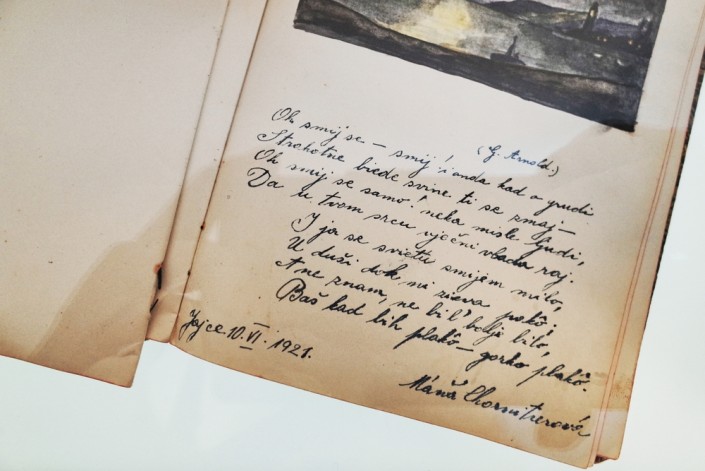 Oh smij se – smij! i onda kad o grudi
(G. Arnold.)
Strahotne biede svine ti se zmaj –
Oh smij se samo! neka misle ljudi,
Da u tvom srcu vječni vlada raj.
I ja se svietu smijem milo,
U duši dok mi zieva pakô,
A ne znam, ne bi l' bolje bilo,
Baš kad bih plakô – gorko plakô.
Jajce 10. VI. 1921.
Máňa